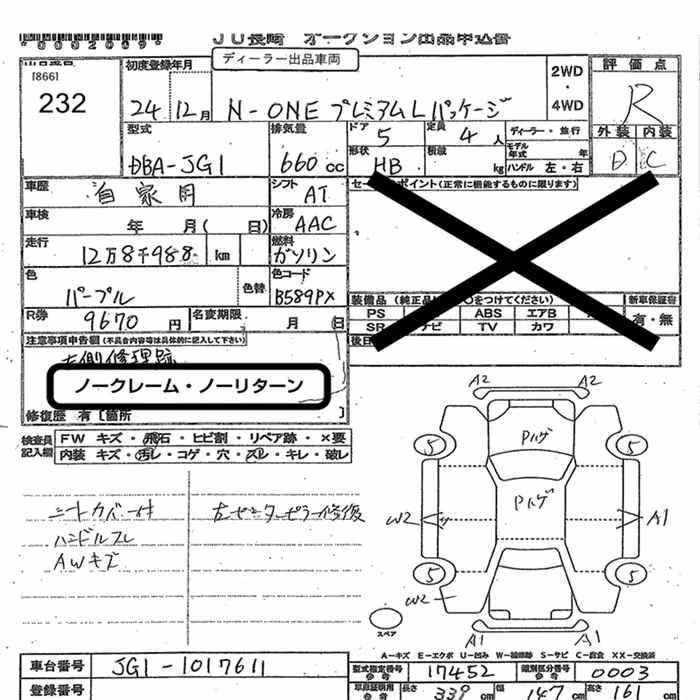 *0002009*
JU長崎 オークション出品申込書
ディーラー出品車両
出品番号
[866]
232
初度登録年月
24 12月
N-ONE プレミアムLパッケージ
2WD
・
4WD
評価点
R
外装 内装
D C
型式
DBA-JG1
排気量
660 cc
ドア
5
定員
4 人
形状
HB
積載
kg
ディーラー・並行
モデル年式 年
ハンドル 左・右
車歴
自家用
シフト
AT
セールスポイント(正常に機能するものに限ります)
車検
年 月( 日)
冷房
AAC
走行
12万8千988 km
燃料
ガソリン
色
パープル
色替
色コード
B589PX
装備品 (純正品に○をつけてください)
新車保証書
PS ABS エアB
SR ナビ TV カワ
有・無
R券
9670 円
名変期限
月 日
後日
注意事項申告欄(不具合内容等は具体的に記入して下さい)
左側修理跡
ノークレーム・ノーリターン
修復歴 有 [箇所 ]
検査員記入欄
FW キズ・飛石・ヒビ割・リペア跡・×要
内装 キズ・汚レ・コゲ・穴・スレ・キレ・破レ
シートカバー付
左センターピラー修復
ハンドルスレ
AWキズ
A2 A2
Pハゲ
5 5
Pハゲ
W2 A1
5 5
W2
スペア
A1 A1
A-キズ E-エクボ U-凹み W-補修跡 S-サビ C-腐食 XX-交換済
車台番号
JG1-1017611
型式指定番号 参考
17452
類別区分番号 参考
0003
登録番号
車庫証明用 参考
長さ 339 cm
幅 147 cm
高さ 161 cm